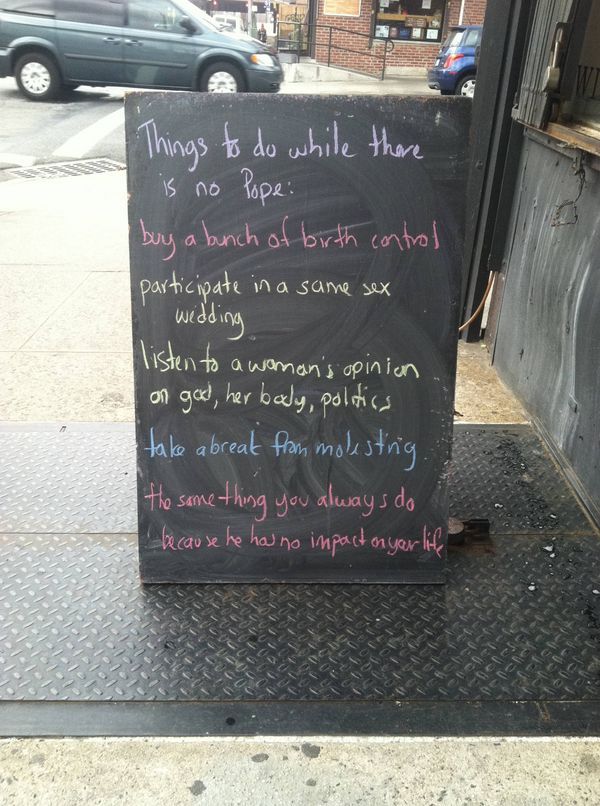 Things to do while there
is no Pope:
buy a bunch of birth control
participate in a same sex
wedding
listen to a woman's opinion
on god, her body, politics
take a break from molesting
the same thing you always do
because he has no impact on your life